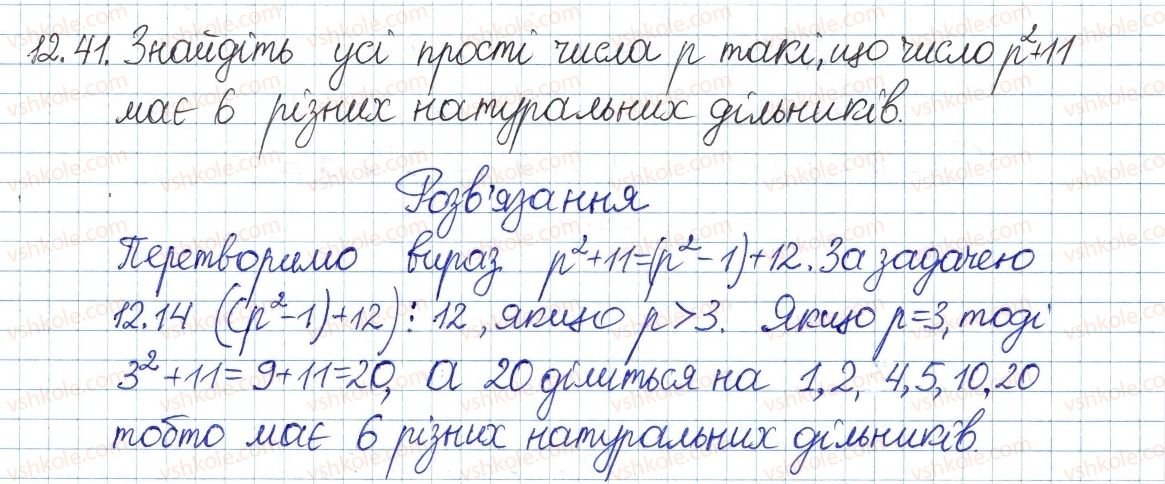 12.41. Знайдіть усі прості числа p такі, що число p²+11
має 6 різних натуральних дільників.
Розв'язання
Перетворимо вираз p²+11=(p²-1)+12. За задачею
12.14 ((p²-1)+12)⋮12, якщо p>3. Якщо p=3, тоді
3²+11=9+11=20, а 20 ділиться на 1, 2, 4, 5, 10, 20
тобто має 6 різних натуральних дільників.